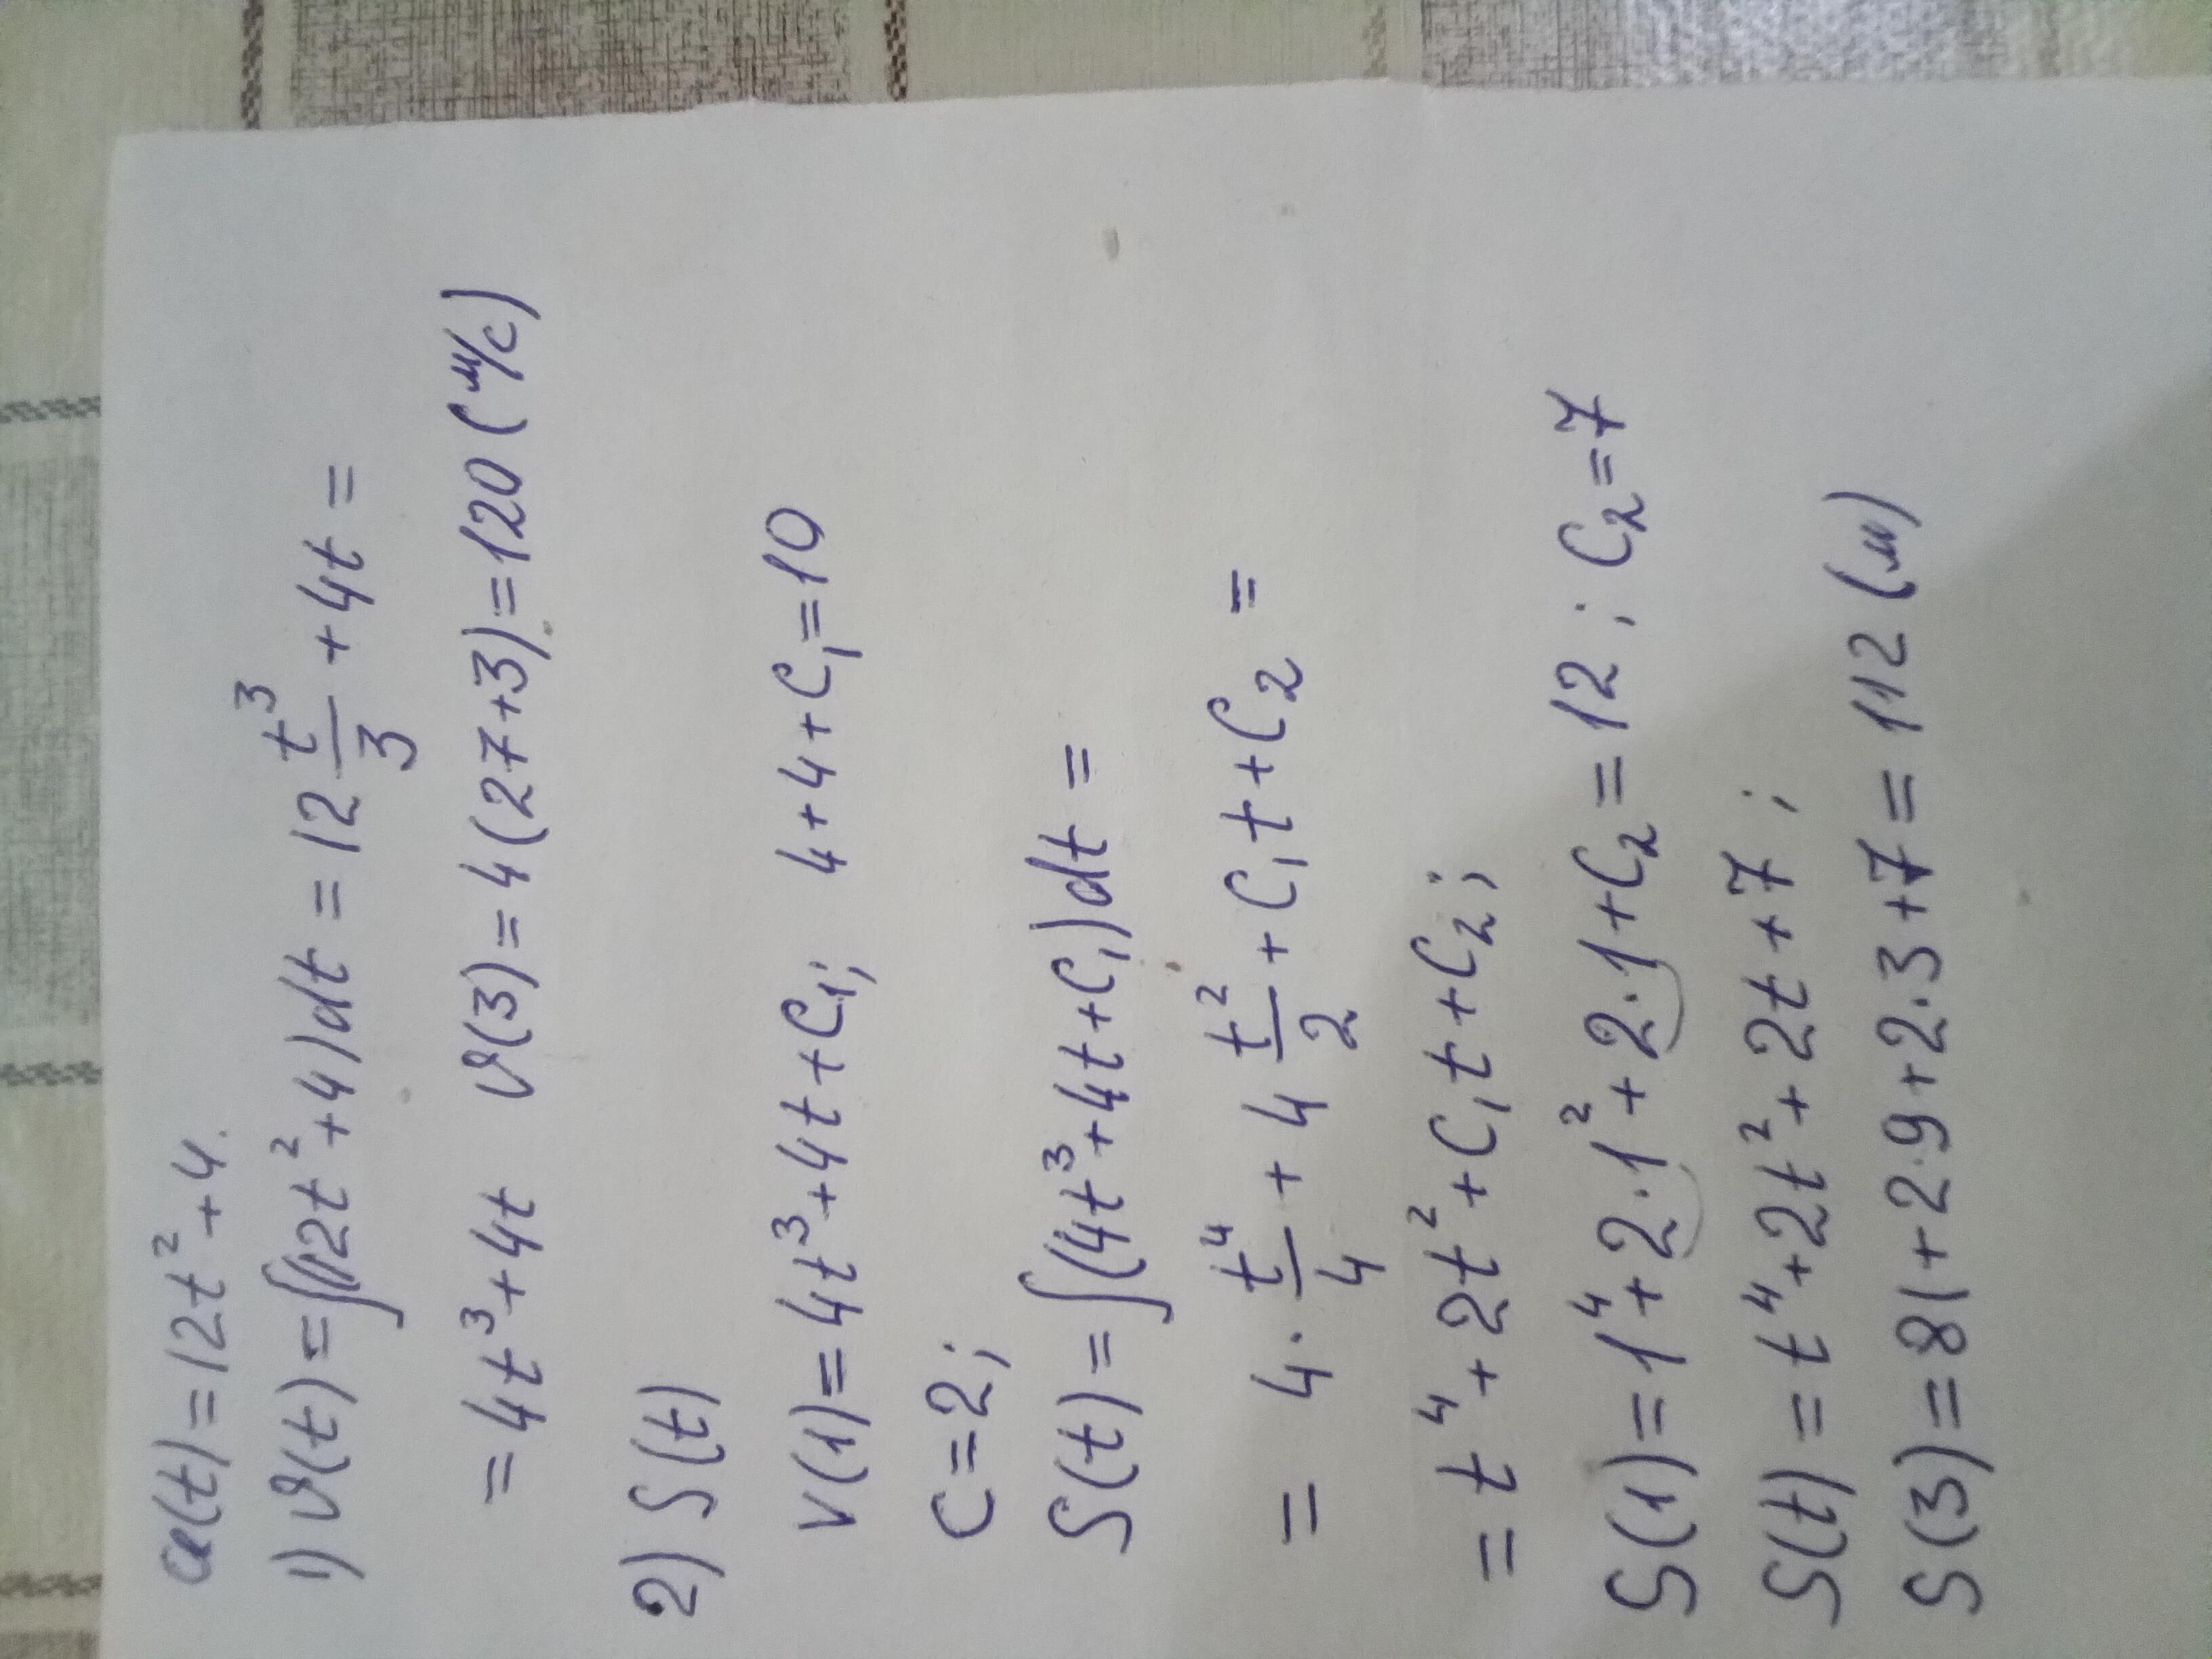 a(t)=12t²+4.
1) υ(t)=∫(12t²+4)dt=12 t³/3+4t=
=4t³+4t υ(3)=4(27+3)=120 (м/с)
2) S(t)
V(1)=4t³+4t+C₁; 4+4+C₁=10
C=2;
S(t)=∫(4t³+4t+C₁)dt=
= 4·t⁴/4+4 t²/2+C₁t+C₂=
=t⁴+2t²+C₁t+C₂;
S(1)=1⁴+2·1²+2·1+C₂=12; C₂=7
S(t)=t⁴+2t²+2t+7;
S(3)=81+2·9+2·3+7=112 (м)